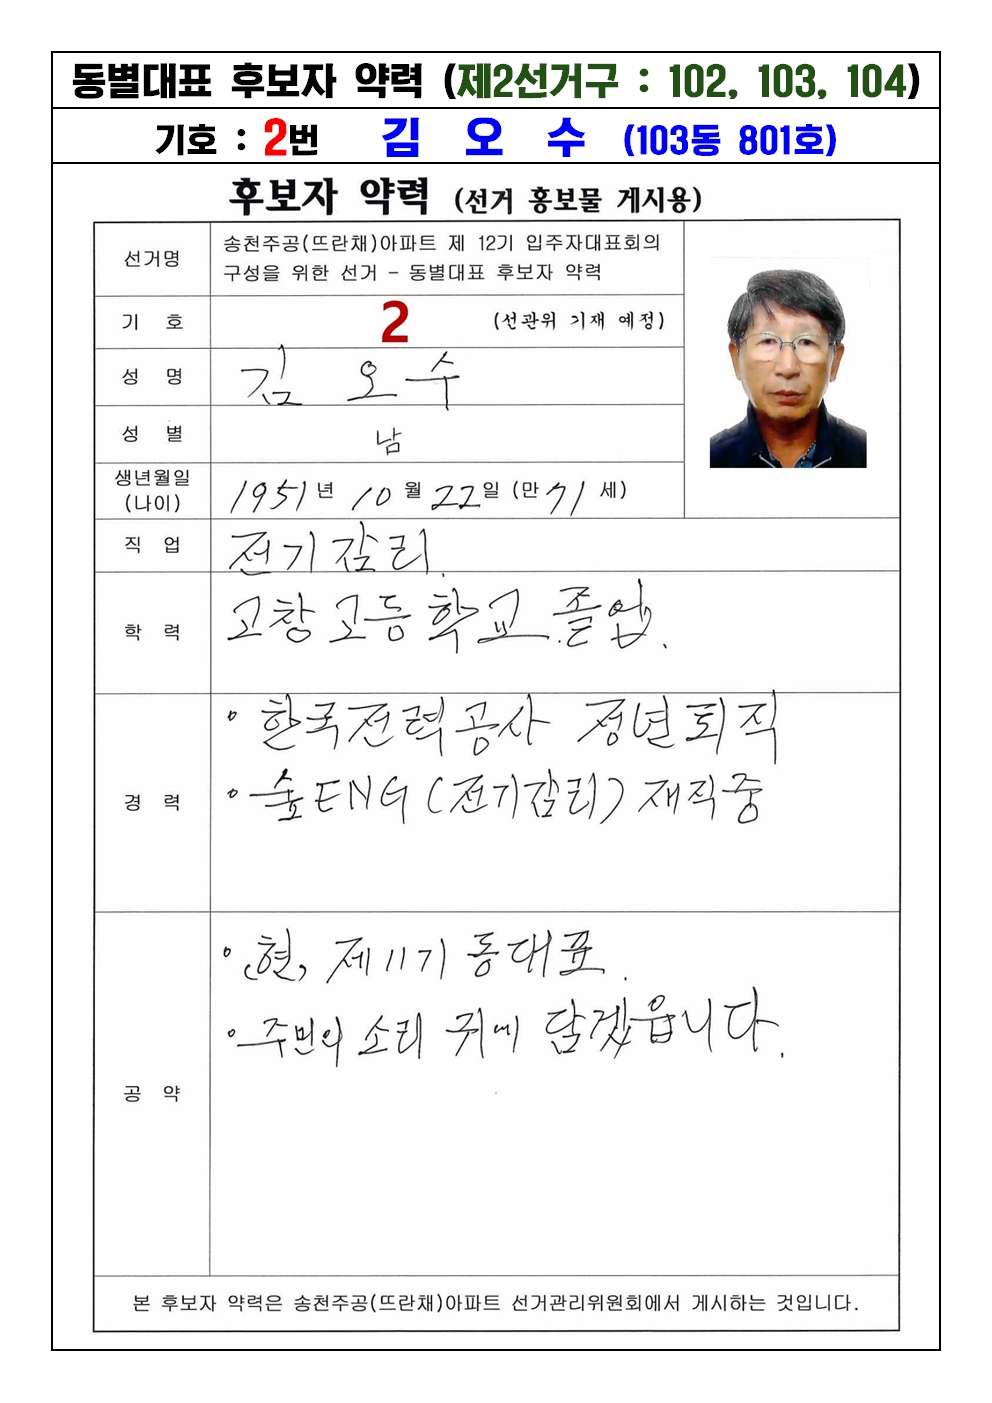 동별대표 후보자 약력 (제2선거구 : 102, 103, 104)
기호 : 2번 김 오 수 (103동 801호)
후보자 약력 (선거 홍보물 게시용)
선거명 송천주공(뜨란채)아파트 제 12기 입주자대표회의
구성을 위한 선거 - 동별대표 후보자 약력
기 호 2 (선관위 기재 예정)
성 명 김 오 수
성 별 남
생년월일
(나이) 1951년 10월 22일 (만 71 세)
직 업 전기감리.
학 력 고창고등학교 졸업.
경 력
◦ 한국전력공사 정년퇴직
◦ 숲ENG (전기감리) 재직중
공 약
◦ (현, 제11기 동대표.
◦ 주민의 소리 귀에 담겠읍니다.
본 후보자 약력은 송천주공(뜨란채)아파트 선거관리위원회에서 게시하는 것입니다.